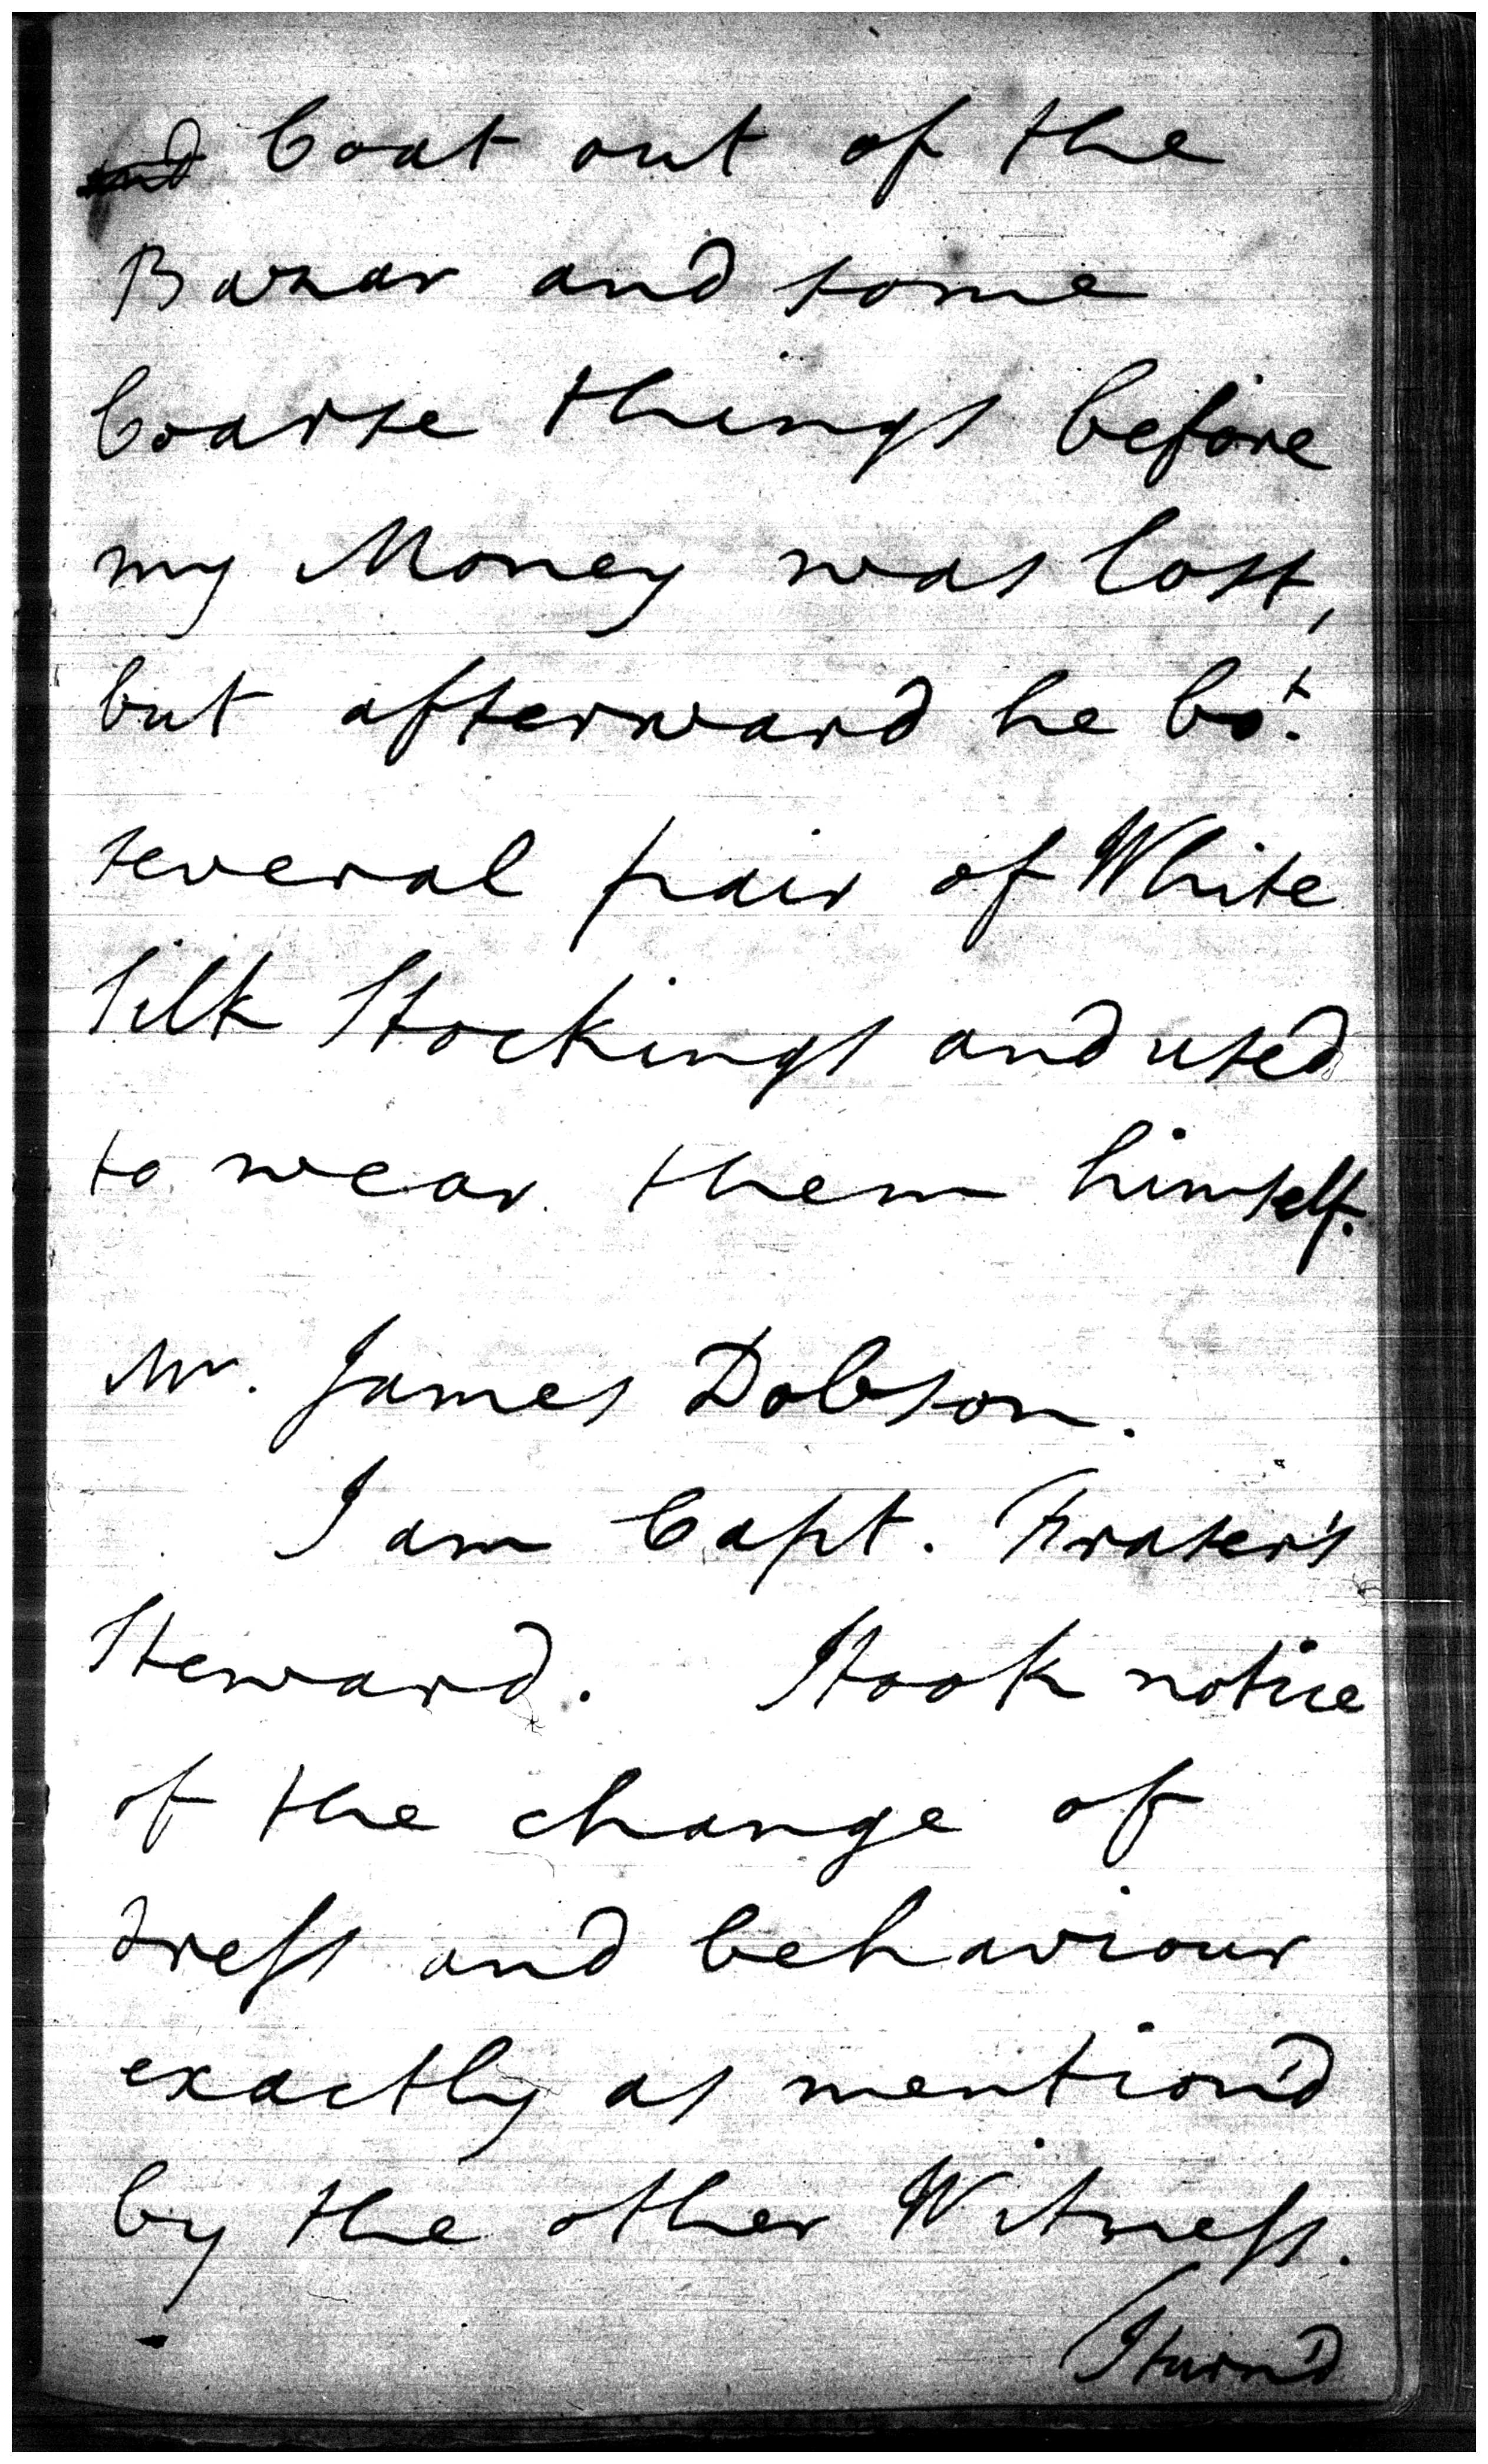 and Coat out of the
Bazar and some
Coarse things before
my Money was lost,
but afterward he bot.
several pair of White
Silk Stockings and used
to wear them himself.
Mr. James Dobson.
I am Capt. Fraser's
Steward. I took notice
of the change of
dress and behaviour
exactly as mention'd
by the other Witness.
I turn'd